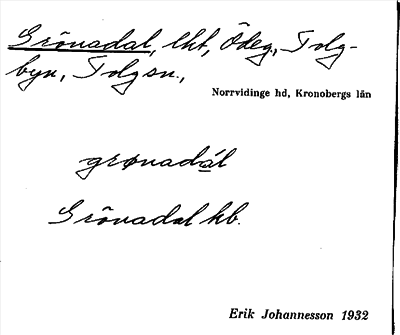 Grönadal, lht, Ödeg., Tolg-
byn, Tolg sn.,
Norrvidinge hd, Kronobergs län
grønadál
Grönadal hb.
Erik Johannesson 1932